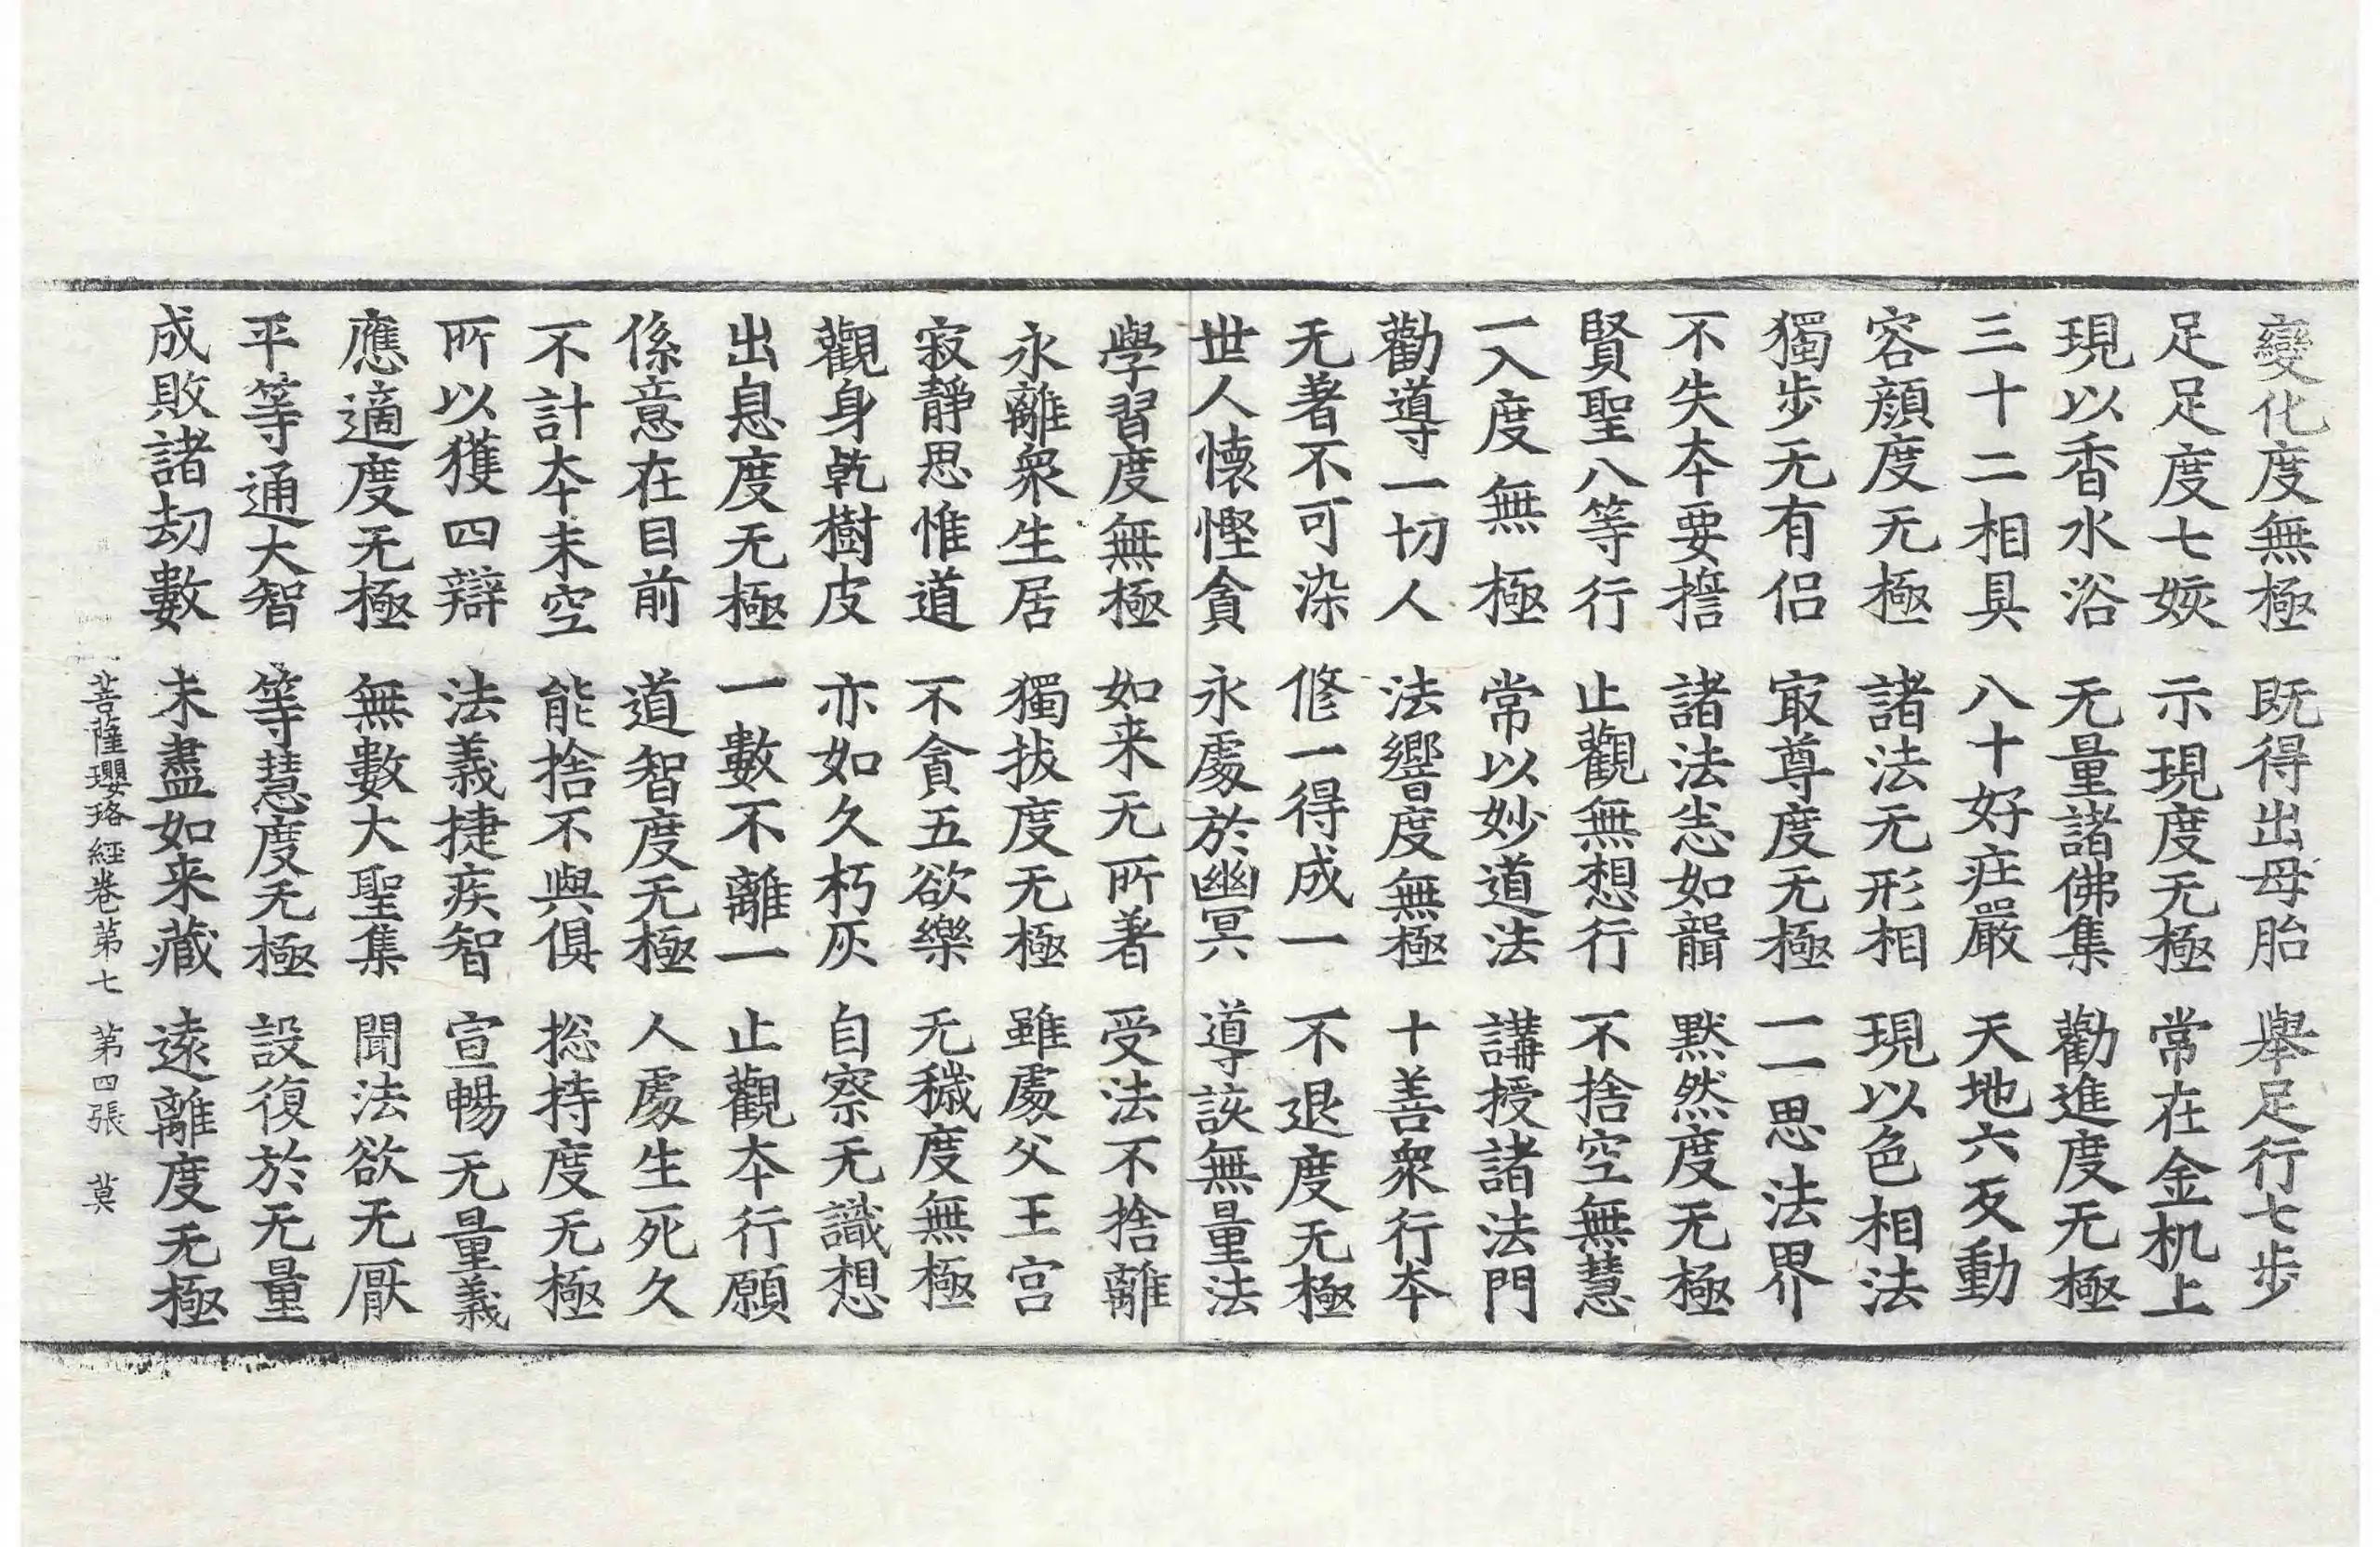 變化度無極 既得出母胎 舉足行七步
足足度七姟 示現度无極 常在金机上
現以香水浴 无量諸佛集 勸進度无極
三十二相具 八十好庄嚴 天地六反動
容顔度无極 諸法无形相 現以色相法
獨步无有侣 㝡尊度无極 一一思法界
不失夲要誓 諸法悉如韻 默然度无極
賢聖八等行 止觀無想行 不捨空無慧
一入度無極 常以妙道法 講授諸法門
勸導一切人 法響度無極 十善衆行夲
无著不可染 修一得成一 不退度无極
世人懷慳貪 永處於幽冥 導該無量法
學習度無極 如来无所著 受法不捨離
永離衆生居 獨拔度无極 雖處父王宫
寂靜思惟道 不貪五欲樂 无穢度無極
觀身乾樹皮 亦如久朽灰 自察无識想
出息度无極 一數不離一 止觀夲行願
係意在目前 道智度无極 人處生死久
不計夲末空 能捨不與俱 揔持度无極
所以獲四辯 法義捷疾智 宣暢无量義
應適度无極 無數大聖集 聞法欲无厭
平等通大智 等慧度无極 設復於无量
成敗諸劫數 未盡如来藏 遠離度无極
菩薩瓔珞經卷第七 第四張 莫